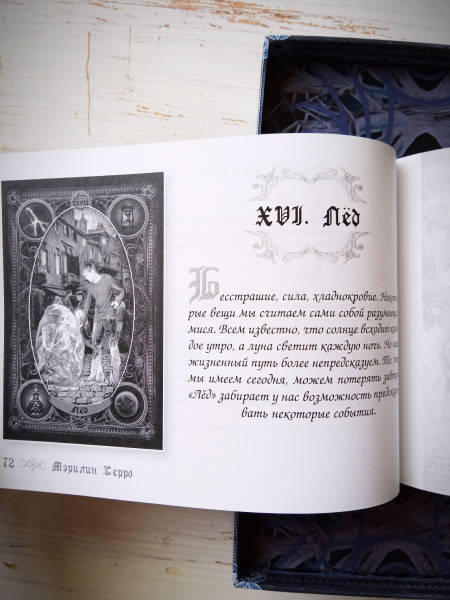 Лёд
72 Мэрилин Керро
XVI. Лёд
Бесстрашие, сила, хладнокровие. Некото
рые вещи мы считаем сами собой разумеющи
мися. Всем известно, что солнце всходит ка
дое утро, а луна светит каждую ночь. Но на
жизненный путь более непредсказуем. То, ч
мы имеем сегодня, можем потерять завтр
«Лёд» забирает у нас возможность предска
вать некоторые события.